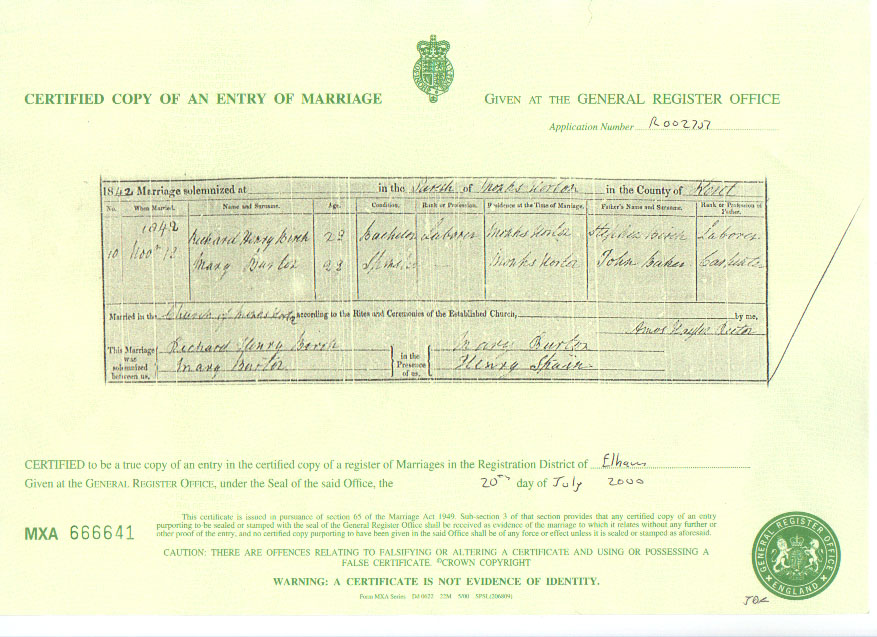 CERTIFIED COPY OF AN ENTRY OF MARRIAGE
GIVEN AT THE GENERAL REGISTER OFFICE
Application Number R002757
1842 Marriage solemnized at in the Parish of Monks Horton in the County of Kent
No. When Married. Name and Surname. Age. Condition. Rank or Profession. Residence at the Time of Marriage. Father's Name and Surname. Rank or Profession of Father.
1842
10 Novr 13 Richard Henry Birch 23 Bachelor Laborer Monks Horton Stephen Birch Laborer
Mary Burton 23 Spinster Monks Horton John Baker
Married in the Church of Monks Horton according to the Rites and Ceremonies of the Established Church, by me,
Amos Rector
This Marriage was solemnized between us, Richard Henry Birch in the Presence of us, Mary Burton
Mary Burton Henry Spain
CERTIFIED to be a true copy of an entry in the certified copy of a register of Marriages in the Registration District of Elham
Given at the GENERAL REGISTER OFFICE, under the Seal of the said Office, the 20th day of July 2000
MXA 666641
This certificate is issued in pursuance of section 65 of the Marriage Act 1949. Sub-section 3 of that section provides that any certified copy of an entry
purporting to be sealed or stamped with the seal of the General Register Office shall be received as evidence of the marriage to which it relates without any further or
other proof of the entry, and no certified copy purporting to have been given in the said Office shall be of any force or effect unless it is sealed or stamped as aforesaid.
CAUTION: THERE ARE OFFENCES RELATING TO FALSIFYING OR ALTERING A CERTIFICATE AND USING OR POSSESSING A
FALSE CERTIFICATE. ©CROWN COPYRIGHT
WARNING: A CERTIFICATE IS NOT EVIDENCE OF IDENTITY.
Form MXA Series Dd 0622 22M 5/00 SPSL(206809)
GENERAL REGISTER OFFICE
ENGLAND